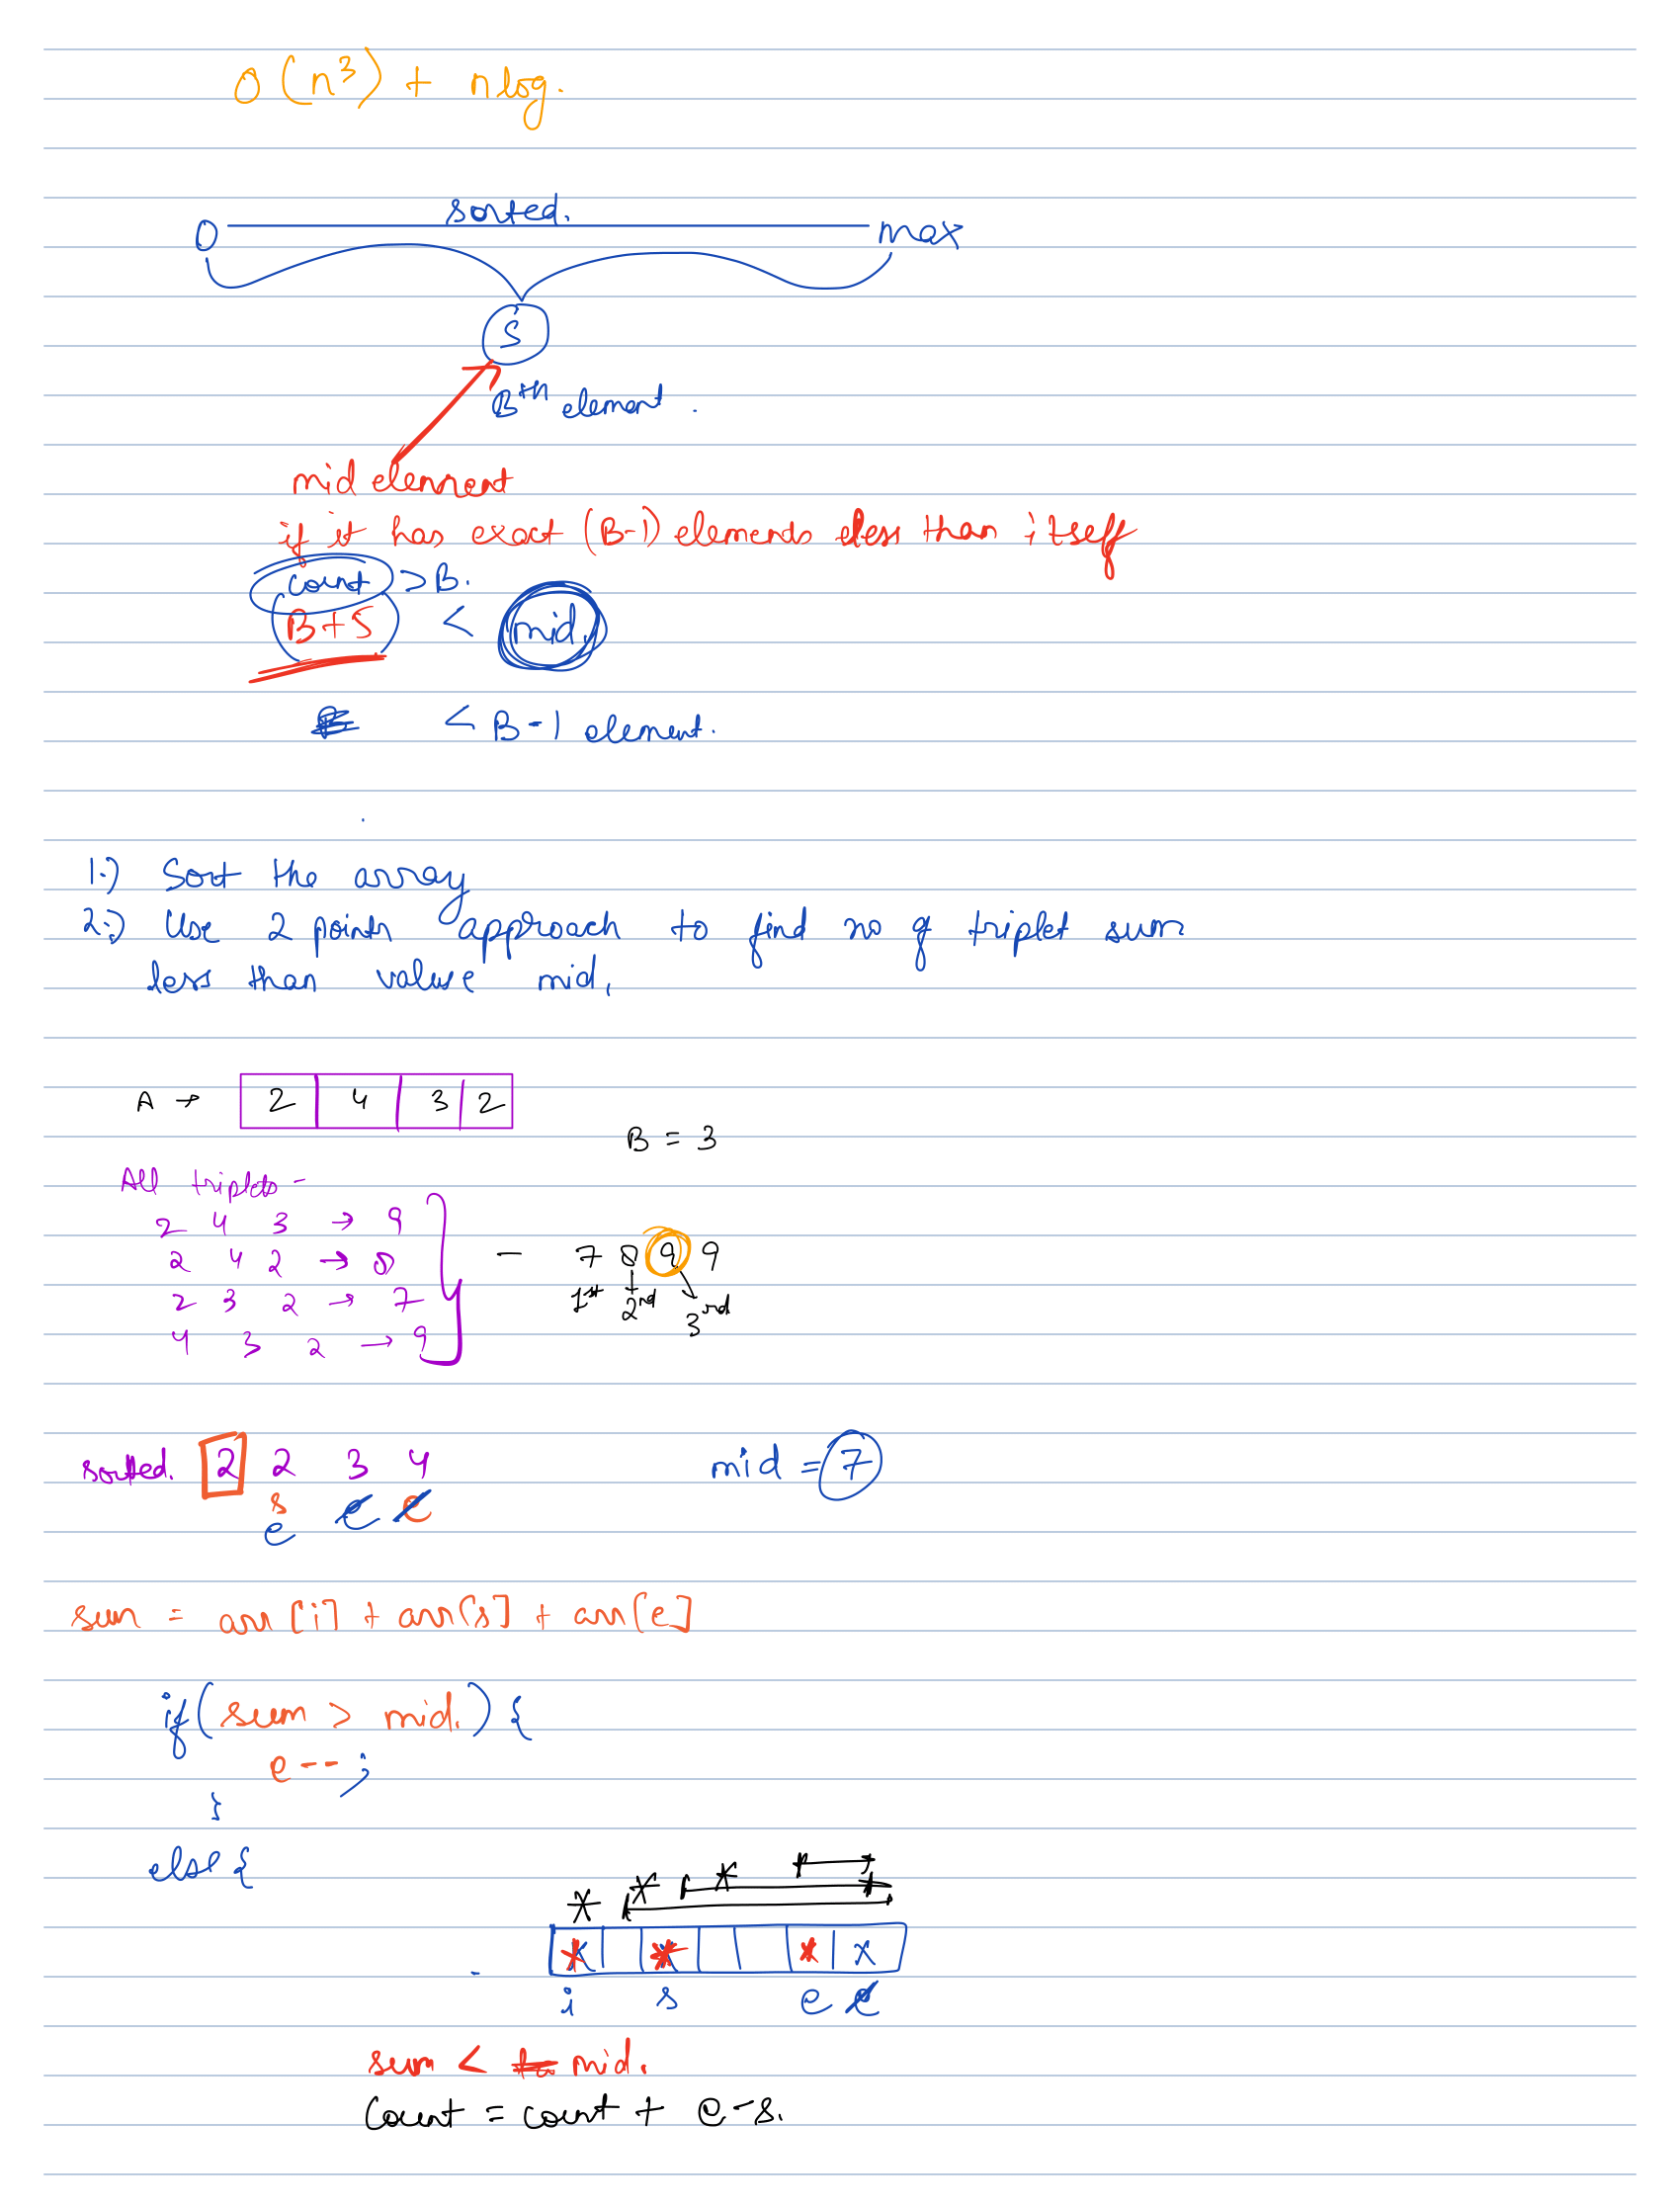 O(n³) + nlog.
sorted.
0 max
S
Bᵗʰ element.
mid element
if it has exact (B-1) elements less than itself
count > B.
B+5 < mid.
< B-1 element.
1.) Sort the array
2.) Use 2 points approach to find no of triplet sum
less than value mid.
A → 2 4 3 2
B = 3
All triplets -
2 4 3 → 9
2 4 2 → 8
2 3 2 → 7
4 3 2 → 9
- 7 8 9 9
1st 2nd 3rd
sorted. 2 2 3 4 mid = 7
s e e
e
sum = arr[i] + arr[s] + arr[e]
if(sum > mid.) {
e--;
}
else {
i s e e
sum < mid.
Count = count + e-s.